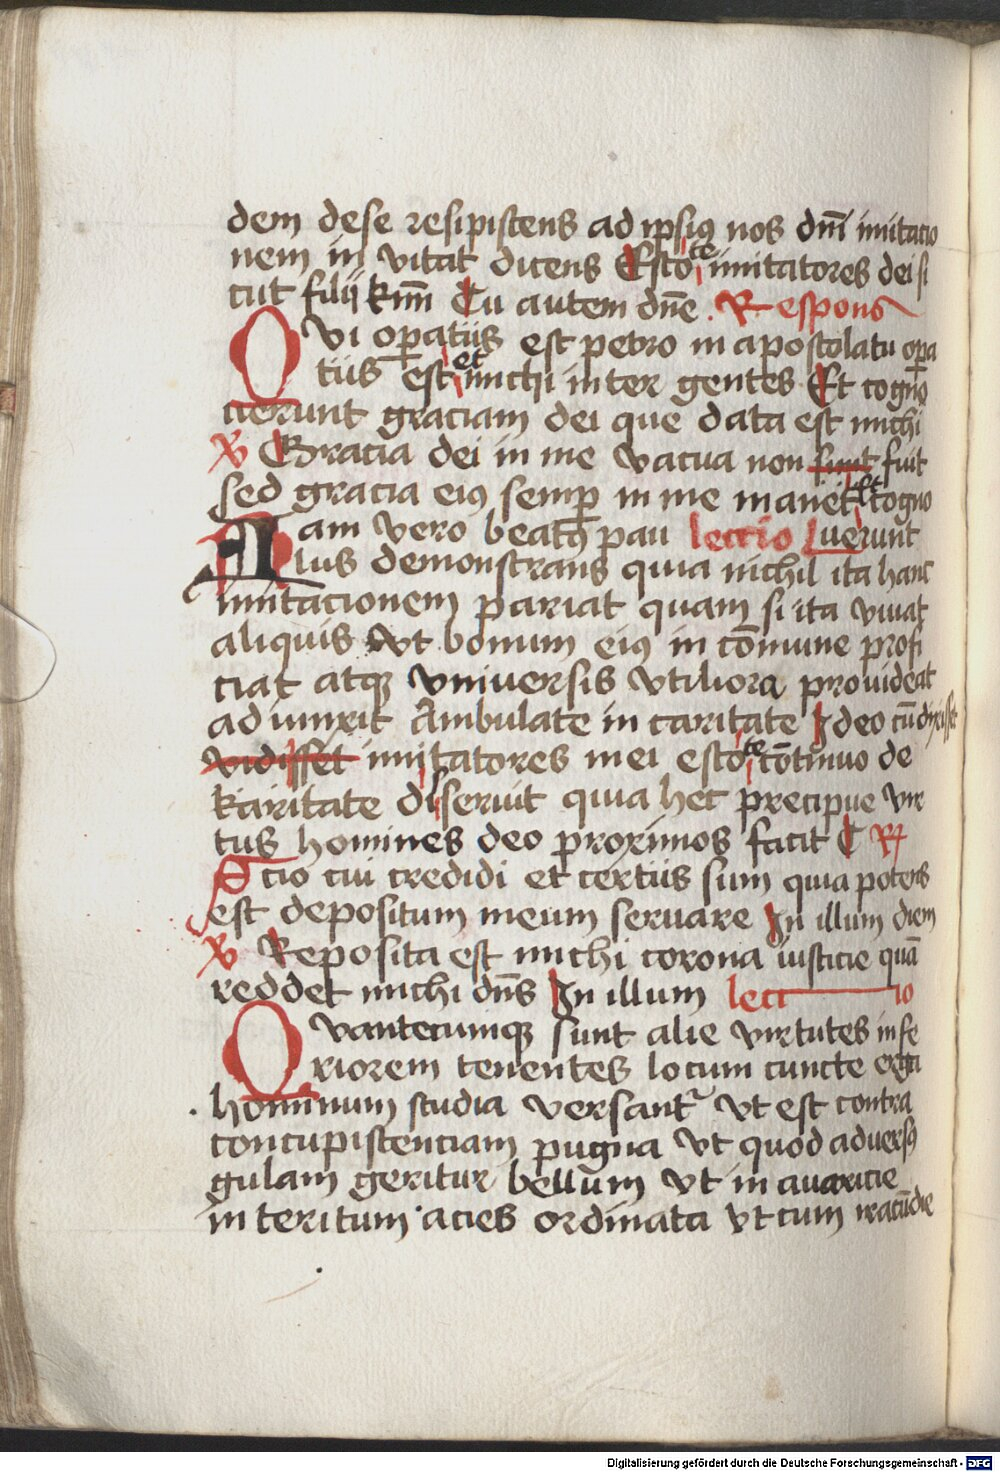 dem dese resipiscens ad ipsius nos dnī imitacio
nem in vitat dicens Estote imitatores dei si
cut filij kmī Tu autem dnē. Respons
Qvi opatus est petro in apostolatu opa
tus est et michi inter gentes Et cogno
uerunt graciam dei que data est michi
V Gracia dei in me vacua non sunt fuit
sed gracia eius semp in me manet Et cogno
Iam vero beatus pau lectio Luerunt
lus demonstrans quia nichil ita hanc
imitacionem pariat quam si ita viuat
aliquis Vt bonum eius in cōmune profi
ciat atque vniuersis vtiliora prouideat
ad iunxit Ambulate in caritate Ideo cū dixisset
vidisset imitatores mei estote cōtinuo de
kairitate diseruit quia hec precipue vir
tus homines deo proximos facit C R
Scio cui credidi et certus sum quia potens
est depositum meum seruare In illum diem
V Reposita est michi corona iusticie quā
reddet michi dns In illum lectio
Qvantecumque sunt alie virtutes infe
riorem tenentes locum cuncte erga
hominum studia versantr Vt est contra
concupiscenciam pugna Vt quod aduersus
gulam geritur bellum Vt in auaricie
in teritum acies ordinata Vt cum iracūdie
Digitalisierung gefördert durch die Deutsche Forschungsgemeinschaft - DFG